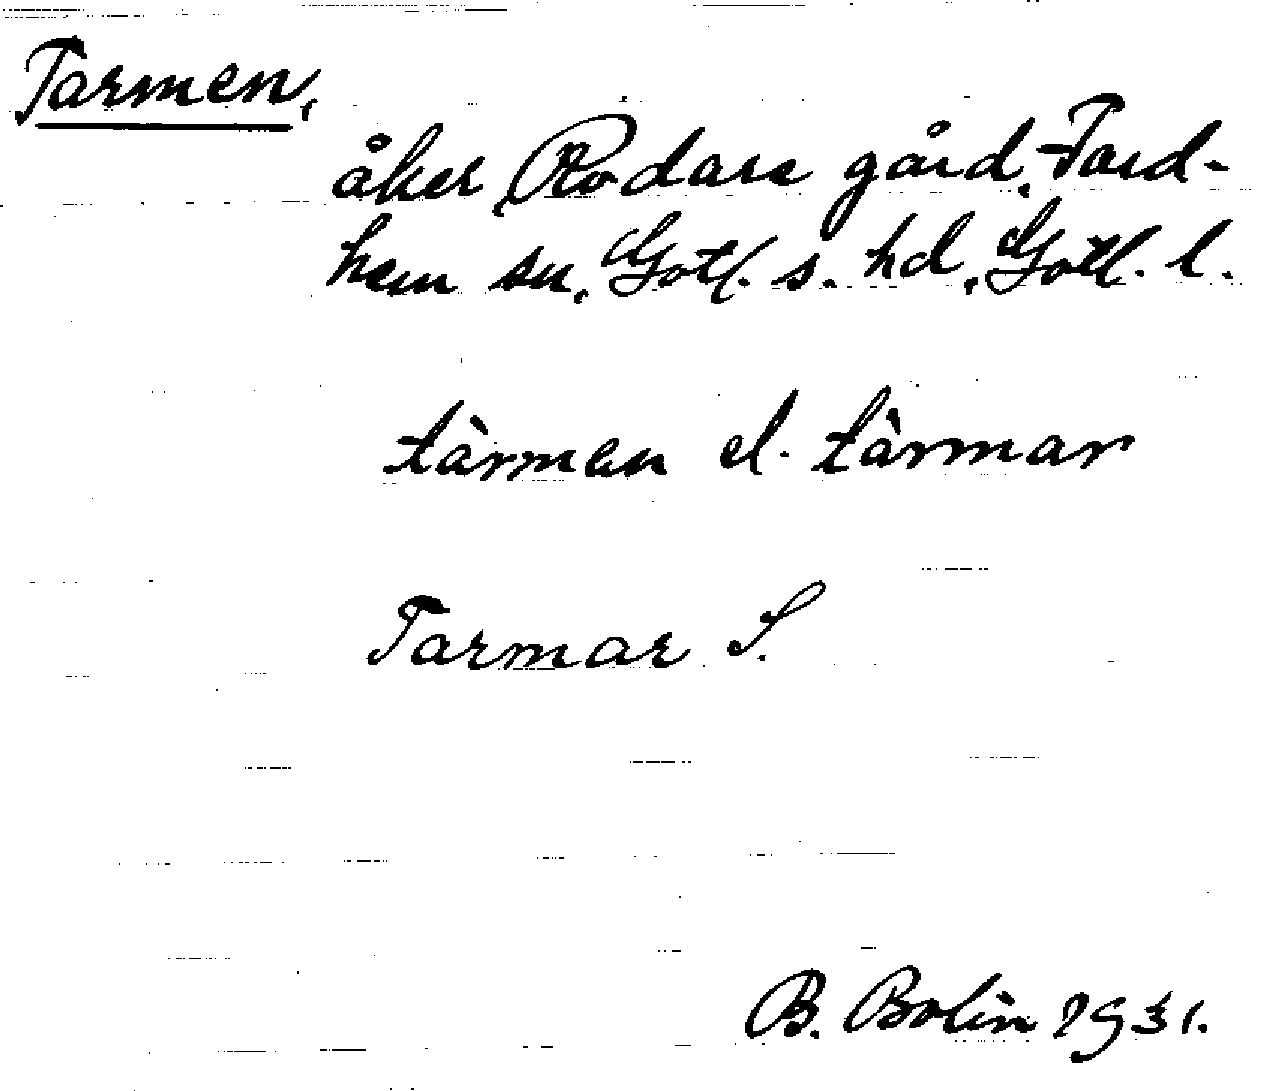 Tarmen,
åker Rodars gård, Fard-
hem sn, Gotl. s. hd, Gotl. l.
tàrmen el. tàrmar
Tarmar S.
B. Bolin 1931.